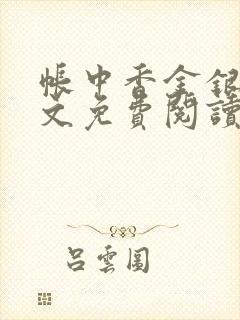 帳中香金銀
文免費閱讀
呂雲圖